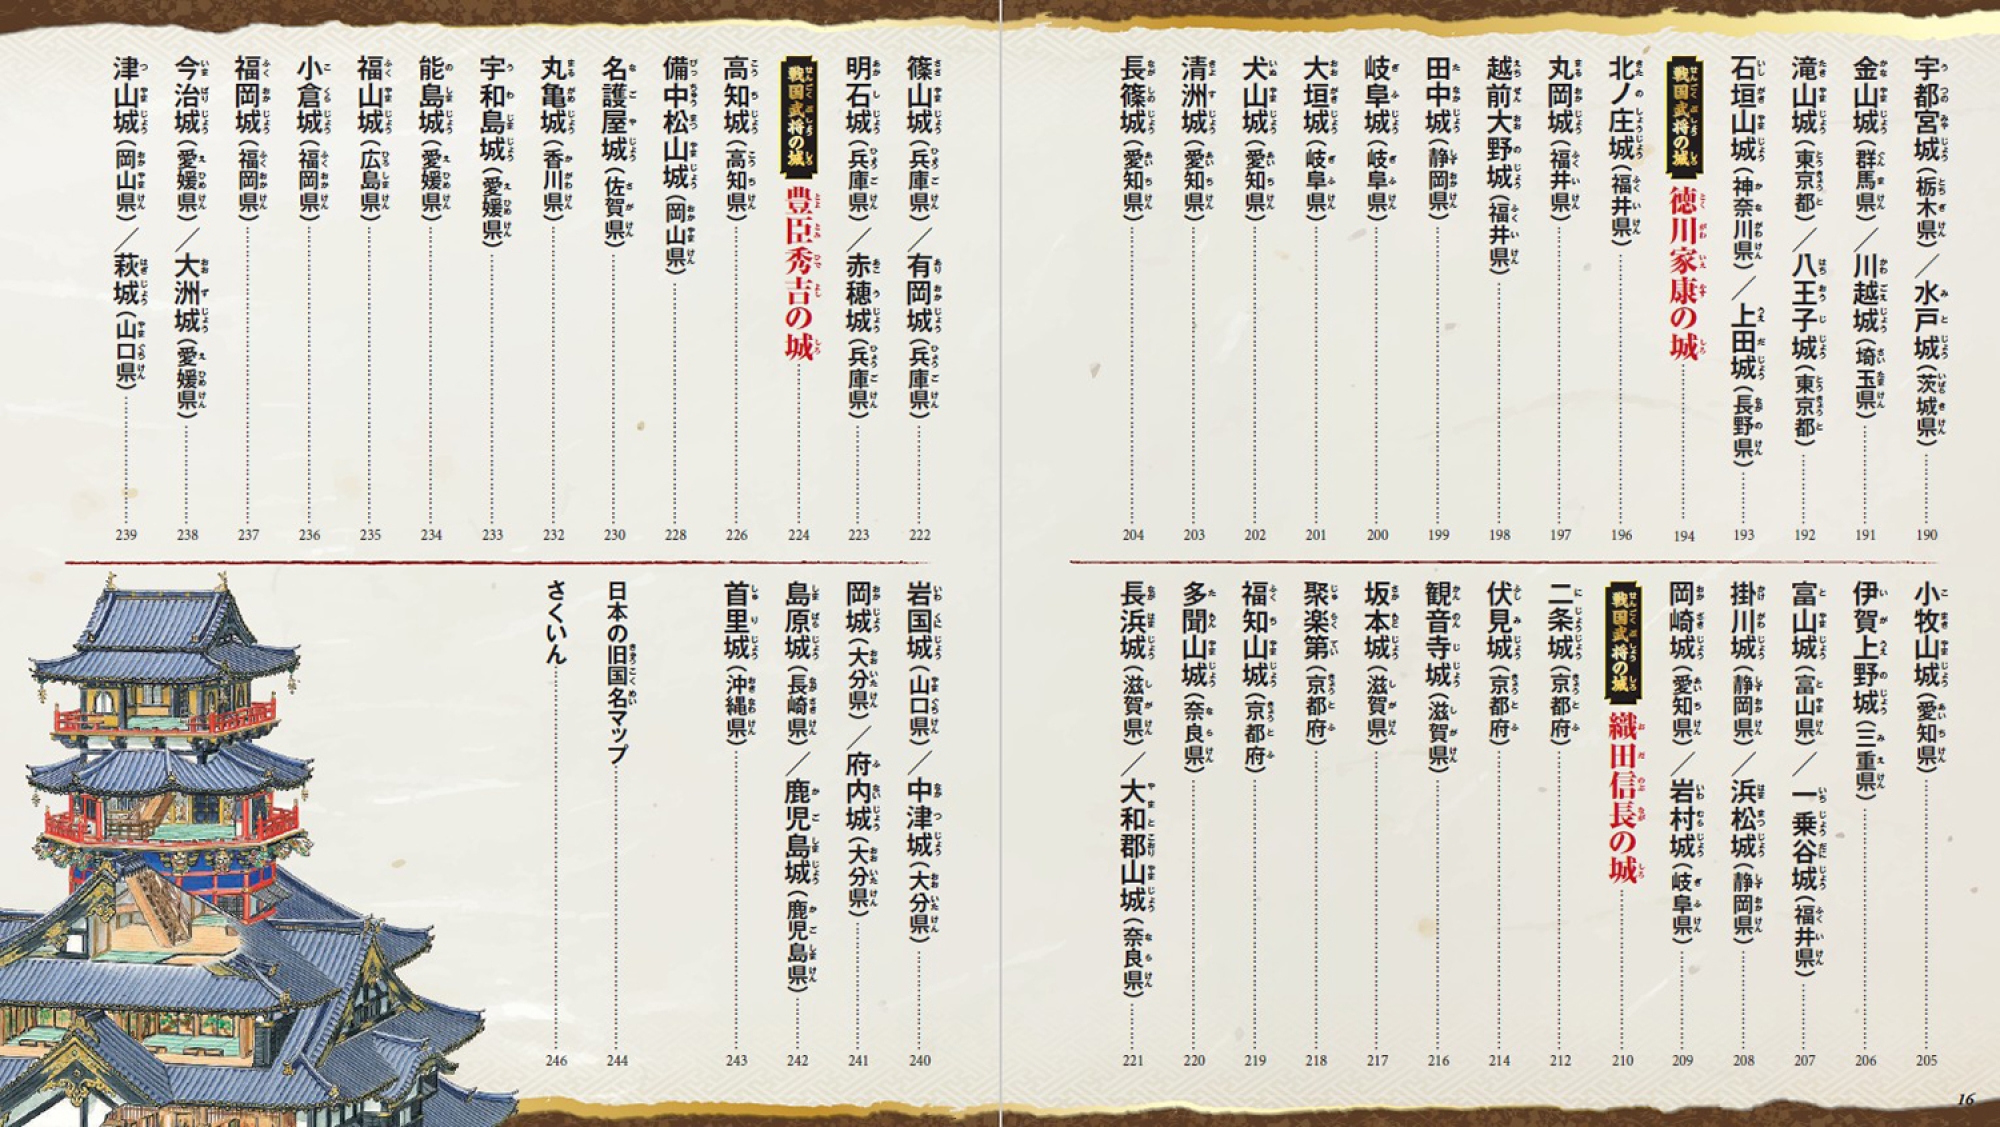 宇都宮城（栃木県）／水戸城（茨城県） 190
金山城（群馬県）／川越城（埼玉県） 191
滝山城（東京都）／八王子城（東京都） 192
石垣山城（神奈川県）／上田城（長野県） 193
戦国武将の城 徳川家康の城 194
北ノ庄城（福井県） 196
丸岡城（福井県） 197
越前大野城（福井県） 198
田中城（静岡県） 199
岐阜城（岐阜県） 200
大垣城（岐阜県） 201
犬山城（愛知県） 202
清洲城（愛知県） 203
長篠城（愛知県） 204
小牧山城（愛知県） 205
伊賀上野城（三重県） 206
富山城（富山県）／一乗谷城（福井県） 207
掛川城（静岡県）／浜松城（静岡県） 208
岡崎城（愛知県）／岩村城（岐阜県） 209
戦国武将の城 織田信長の城 210
二条城（京都府） 212
伏見城（京都府） 214
観音寺城（滋賀県） 216
坂本城（滋賀県） 217
聚楽第（京都府） 218
福知山城（京都府） 219
多聞山城（奈良県） 220
長浜城（滋賀県）／大和郡山城（奈良県） 221
16
篠山城（兵庫県）／有岡城（兵庫県） 222
明石城（兵庫県）／赤穂城（兵庫県） 223
戦国武将の城 豊臣秀吉の城 224
高知城（高知県） 226
備中松山城（岡山県） 228
名護屋城（佐賀県） 230
丸亀城（香川県） 232
宇和島城（愛媛県） 233
能島城（愛媛県） 234
福山城（広島県） 235
小倉城（福岡県） 236
福岡城（福岡県） 237
今治城（愛媛県）／大洲城（愛媛県） 238
津山城（岡山県）／萩城（山口県） 239
岩国城（山口県）／中津城（大分県） 240
岡城（大分県）／府内城（大分県） 241
島原城（長崎県）／鹿児島城（鹿児島県） 242
首里城（沖縄県） 243
日本の旧国名マップ 244
さくいん 246